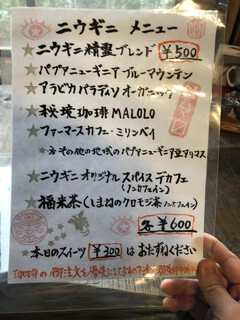 ニウギニ メニュー
★ニウギニ精霊ブレンド ¥500
★パプアニューギニア ブルーマウンテン
★アラビカパラディソ オーガニック
★秘境珈琲MALOLO
★ファーマースカフェ・ミリンベイ
※その他の地域のパプアニューギニア豆アリマス
★ニウギニオリジナルスパイスデカフェ
(ノンカフェイン)
★福来茶(しまねのクロモジ茶ノンカフェイン)
各¥600
★本日のスイーツ ¥300 はおたずねください